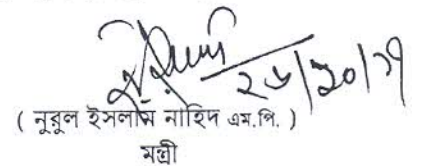 ২৬/১০/১৭
( নুরুল ইসলাম নাহিদ এম.পি. )
মন্ত্রী